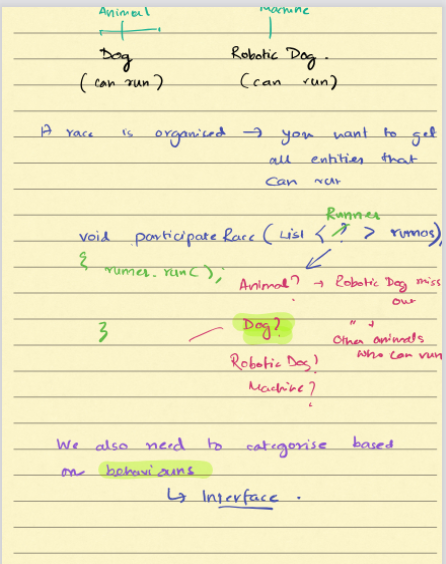 Animal Machine
Dog Robotic Dog.
(can run) (can run)
A race is organised → you want to get
all entities that
can run
Runner
void participateRace (List < ? > runners),
{ runner.run();
Animal? → Robotic Dog miss
out
} Dog? " + other animals
who can run
Robotic Dog?
Machine?
We also need to categorise based
on behaviours
↳ Interface.